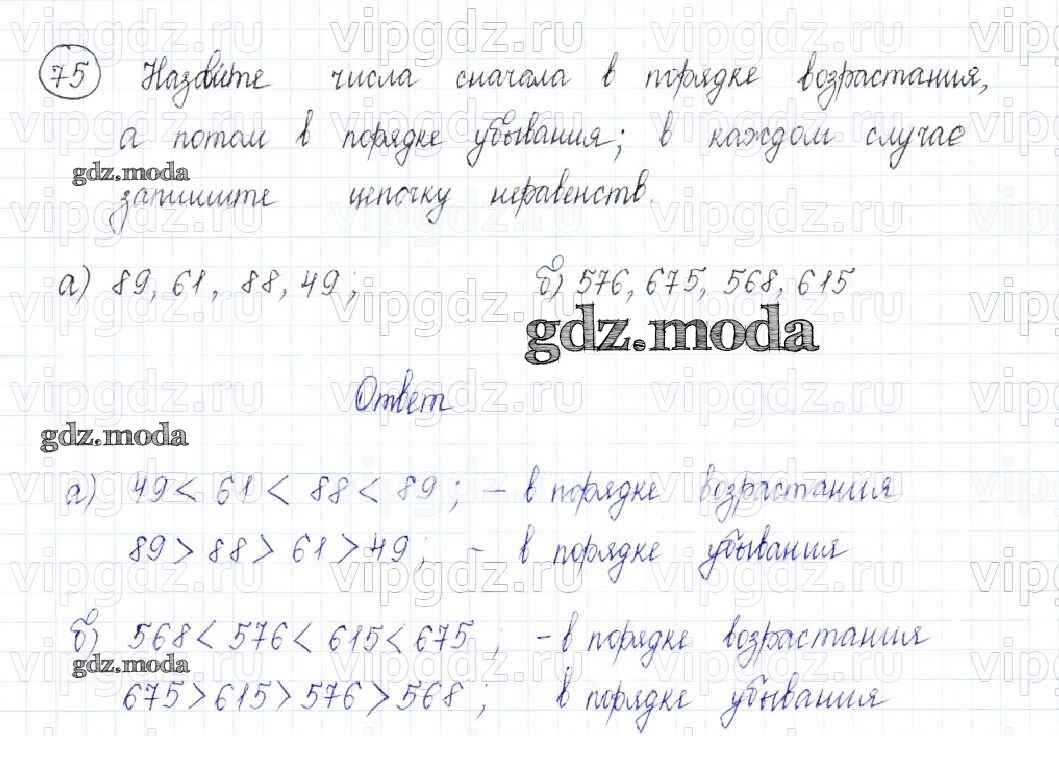 75 Назовите числа сначала в порядке возрастания,
а потом в порядке убывания; в каждом случае
gdz.moda
запишите цепочку неравенств.
а) 89, 61, 88, 49; б) 576, 675, 568, 615
gdz.moda
Ответ
gdz.moda
а) 49 < 61 < 88 < 89 ; – в порядке возрастания
89 > 88 > 61 > 49 ; – в порядке убывания
б) 568 < 576 < 615 < 675 ; – в порядке возрастания
gdz.moda
675 > 615 > 576 > 568 ; в порядке убывания
vipgdz.ru